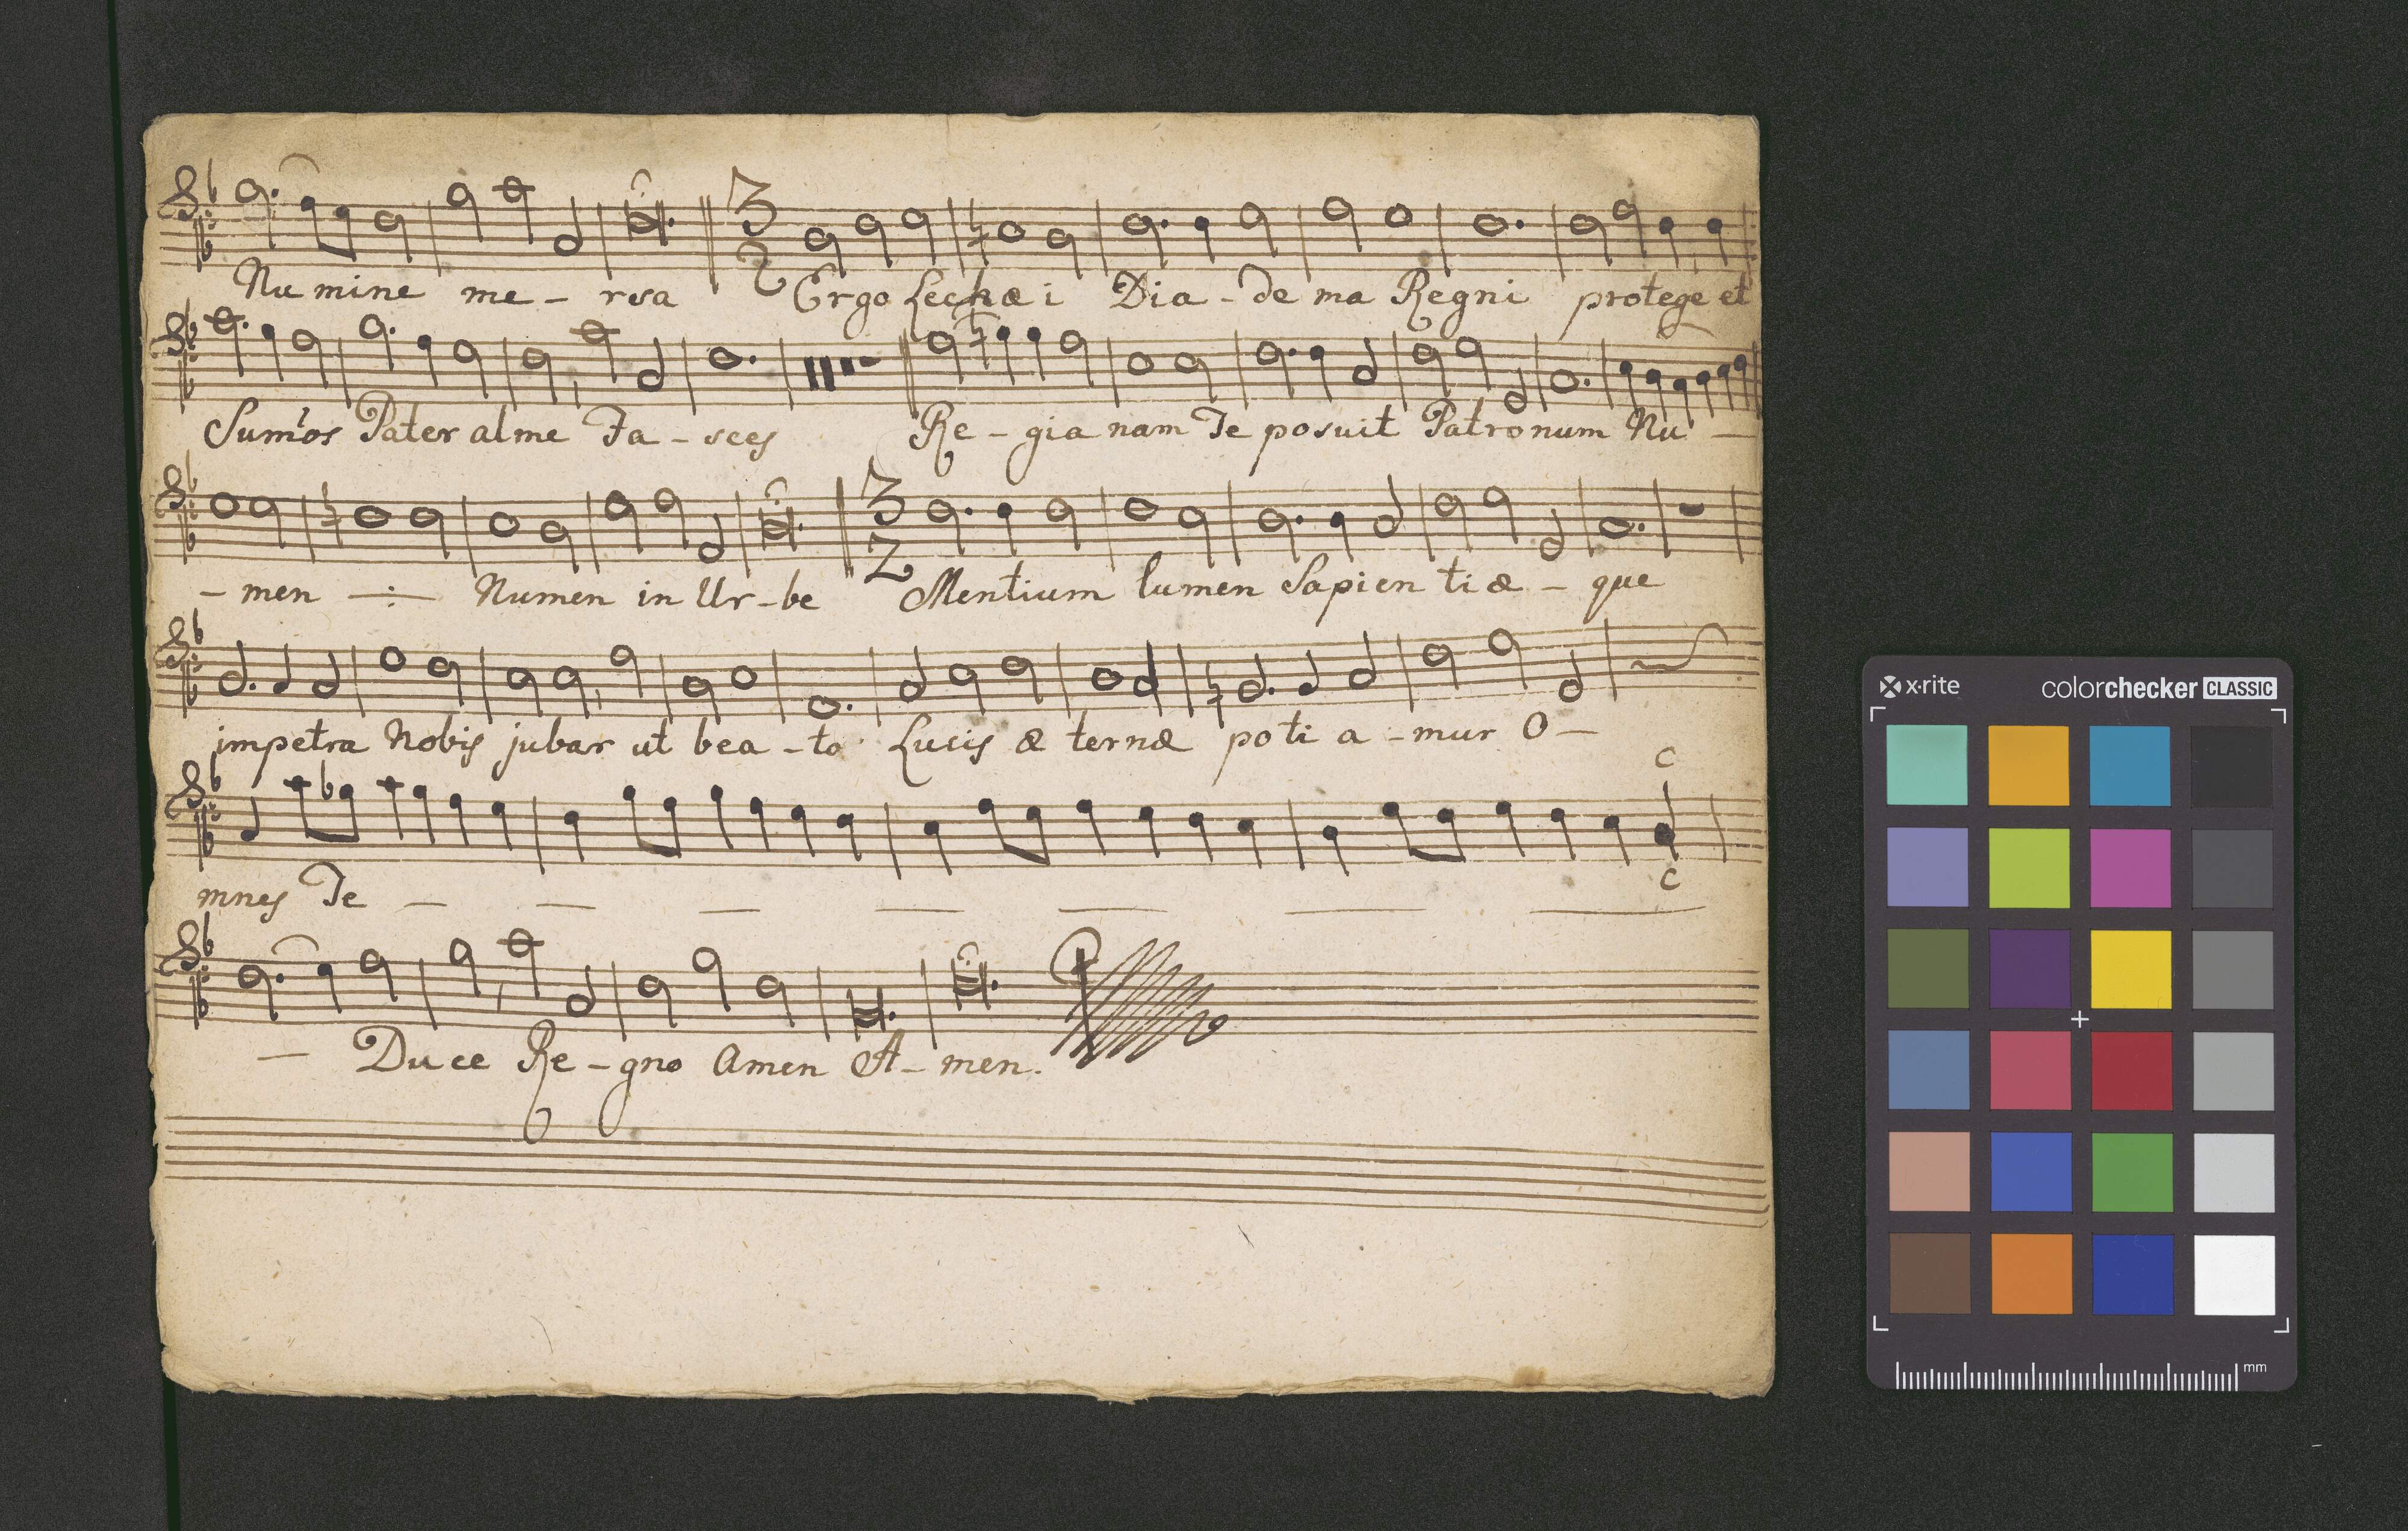 Numine me - rsa Ergo Lechæi Dia - de ma Regni protege et
Sum̃os Pater alme Fa - sces Re - gia nam Te posuit Patronum Nu -
- men Numen in Ur - be Mentium lumen Sapien ti æ - que
impetra Nobis jubar ut bea - to Lucis æ ternæ po ti a - mur O -
C
C
mnes Te
Duce Re - gno Amen A - men.
x·rite colorchecker CLASSIC
mm